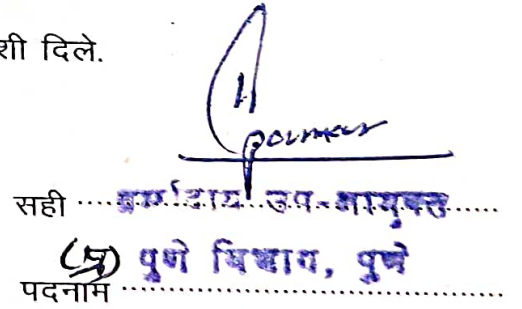 शी दिले.
सही ..... धर्मादाय उप-आयुक्त .....
(प्र) पुणे विभाग, पुणे
पदनाम .....